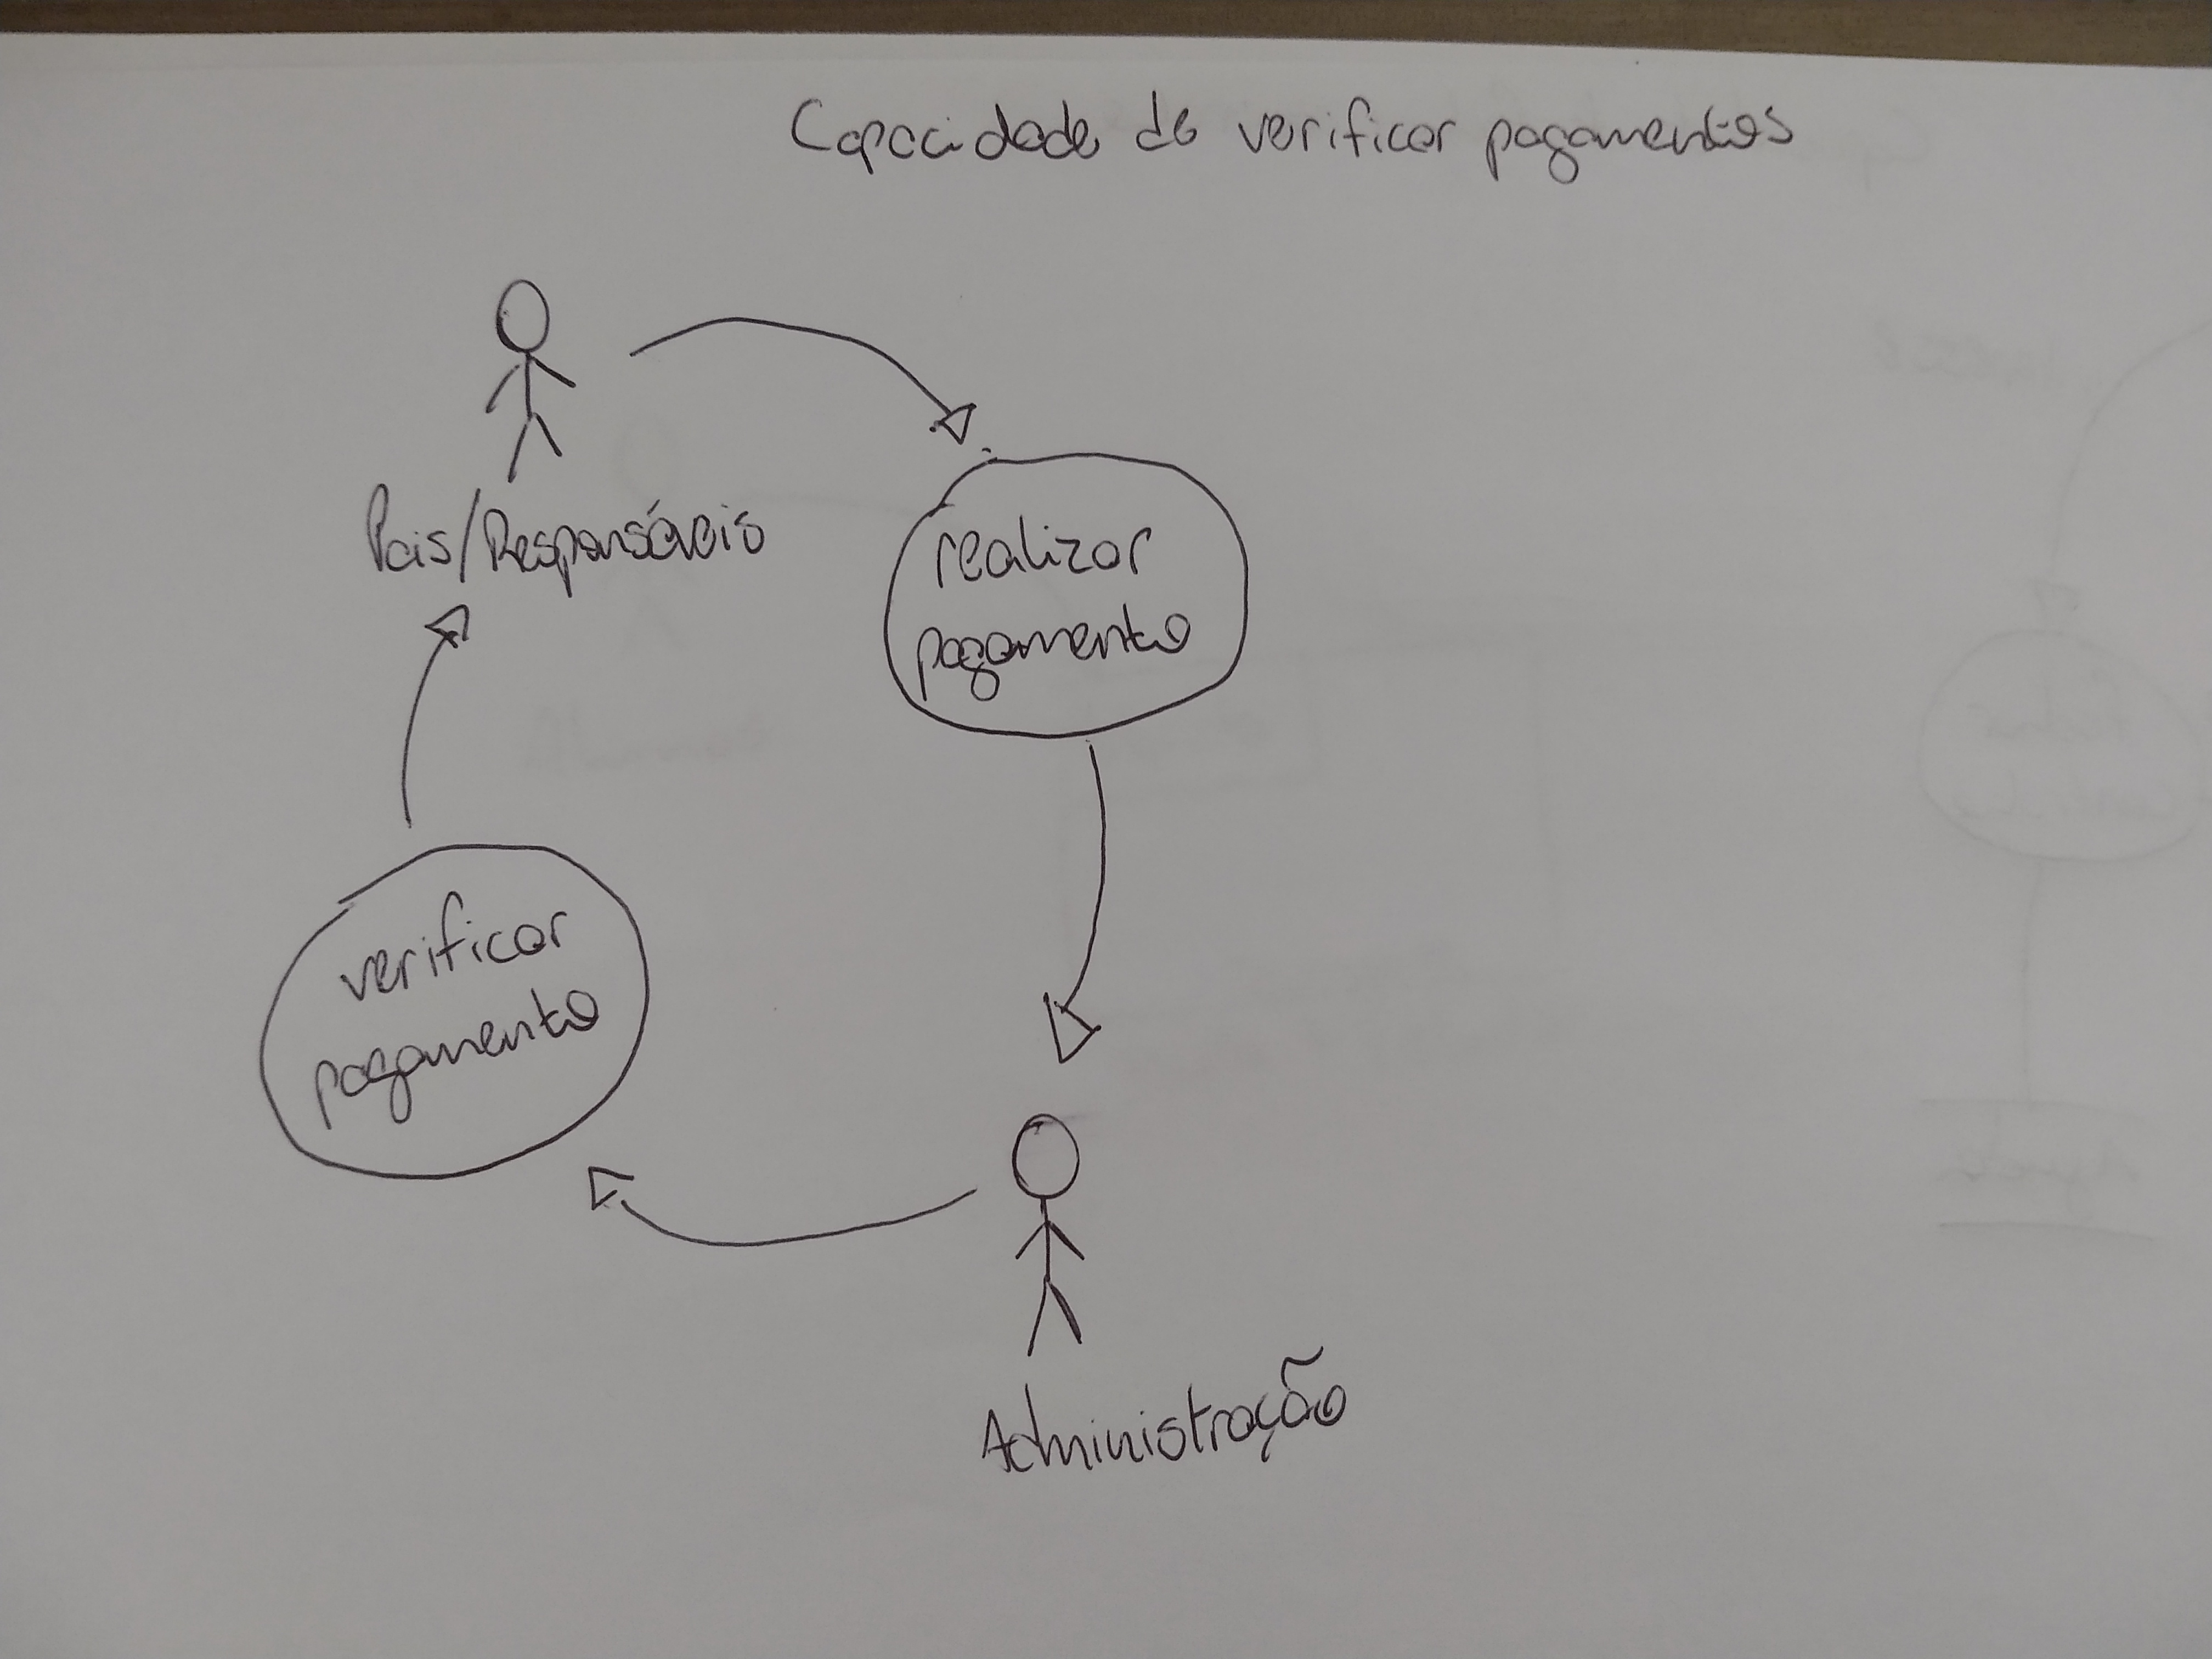 Capacidade de verificar pagamentos
Pais/Responsáveis
realizar
pagamento
verificar
pagamento
Administração